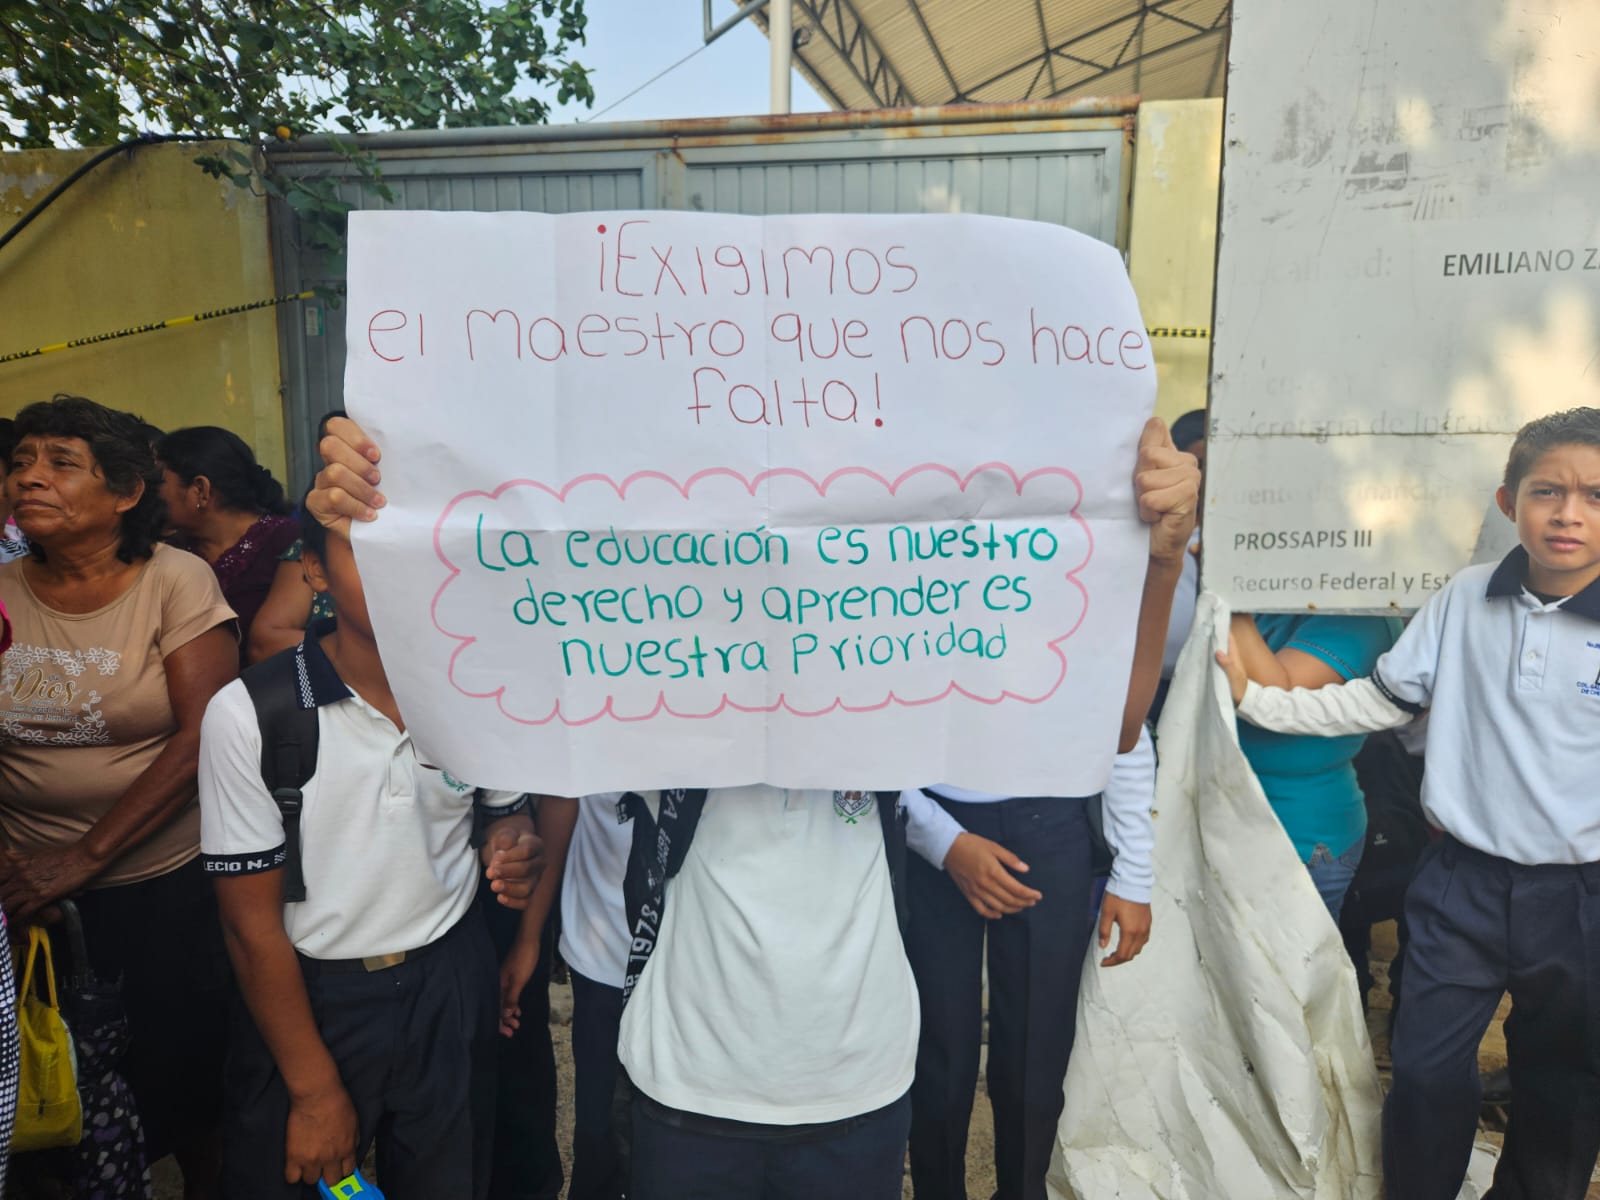 ¡Exigimos
el maestro que nos hace
falta!
La educación es nuestro
derecho y aprender es
nuestra prioridad
Localidad: EMILIANO
Secretaría de
PROSSAPIS III
Recurso Federal y
Dios
LECIO N-
1978